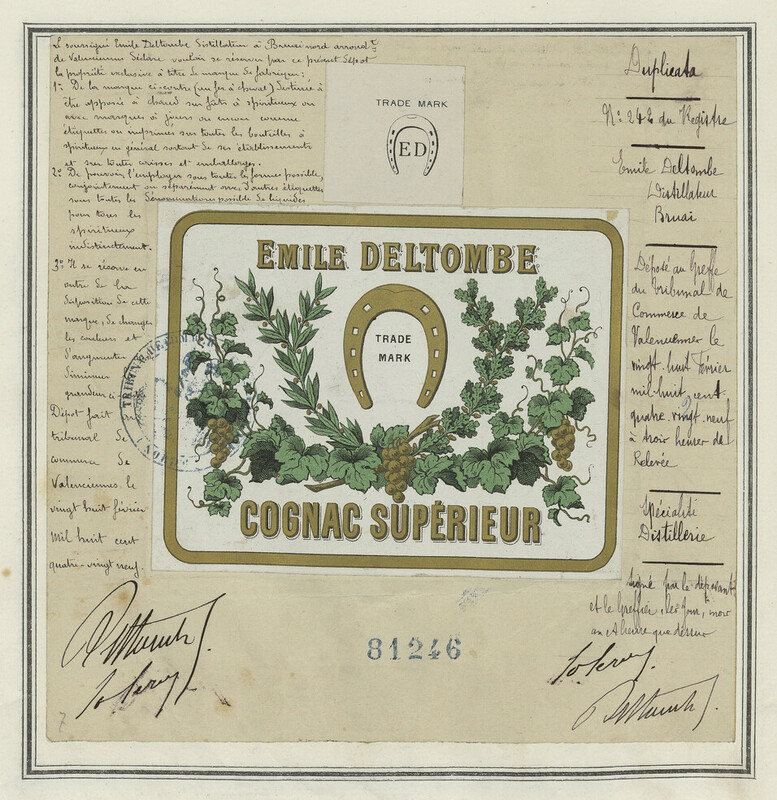 Le soussigné Emile Deltombe Distillateur à Bruai nord arrondt
de Valenciennes Déclare vouloir se réserver par ce présent Dépôt
la propriété exclusive à titre de marque de fabrique:
1º De la marque ci-contre (un fer à cheval) destinée à
être apposée à chaud sur fûts à spiritueux ou
avec marques à jours ou encore comme
étiquettes ou imprimés sur toutes les bouteilles à
spiritueux en général sortant de ses établissements
et sur toutes caisses et emballages.
2º De pouvoir l'employer sous toutes les formes possible,
conjointement ou séparément avec d'autres étiquettes
sous toutes les Dénominations possible de liquides
pour tous les
spiritueux
indistinctement.
3º Il se réserve en
outre de la
disposition de cette
marque, de changer
les couleurs et
d'augmenter
diminuer
grandeur ci-
Dépôt fait
tribunal de
commerce de
Valenciennes le
vingt huit février
mil huit cent
quatre-vingt neuf.
TRADE MARK
ED
EMILE DELTOMBE
TRADE
MARK
COGNAC SUPÉRIEUR
TRIBUNAL DE COMMERCE
(NORD)
Duplicata
Nº 242 du Registre
Emile Deltombe
Distillateur
Bruai
Déposé au Greffe
du Tribunal de
Commerce de
Valenciennes le
vingt huit février
mil huit cent
quatre-vingt-neuf
à trois heures de
Relevée
Spécialité
Distillerie
Signé par le déposant
et le Greffier les jour, mois
an et heure que dessus
81246